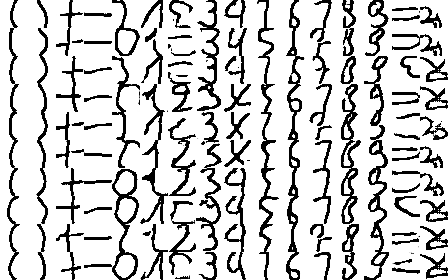 ( ) + - 0 1 2 3 4 5 6 7 8 9 =
( ) + - 0 1 2 3 4 5 6 7 8 9 =
( ) + - 0 1 2 3 4 5 6 7 8 9
( ) + - 0 1 2 3 4 5 6 7 8 9 =
( ) + - 0 1 2 3 4 5 6 7 8 9 =
( ) + - 0 1 2 3 4 5 6 7 8 9 =
( ) + - 0 1 2 3 4 5 6 7 8 9 =
( ) + - 0 1 2 3 4 5 6 7 8 9
( ) + - 0 1 2 3 4 5 6 7 8 9 =
( ) + - 0 1 2 3 4 5 6 7 8 9 =